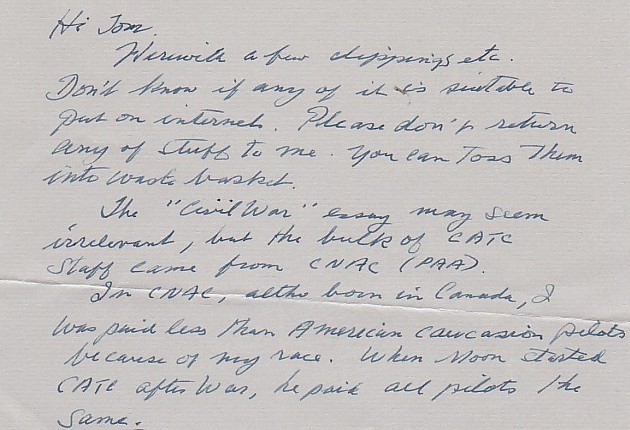 Hi Tom.
Herewith a few clippings etc.
Don't know if any of it is suitable to
put on internet. Please don't return
any of stuff to me. You can Toss Them
into waste basket.
The "Civil War" essay may seem
irrelevant, but the bulk of CATC
Staff came from CNAC (PAA).
In CNAC, altho born in Canada, I
was paid less than American caucasion pilots
because of my race. When Moon started
CATC after War, he paid all pilots the
same.